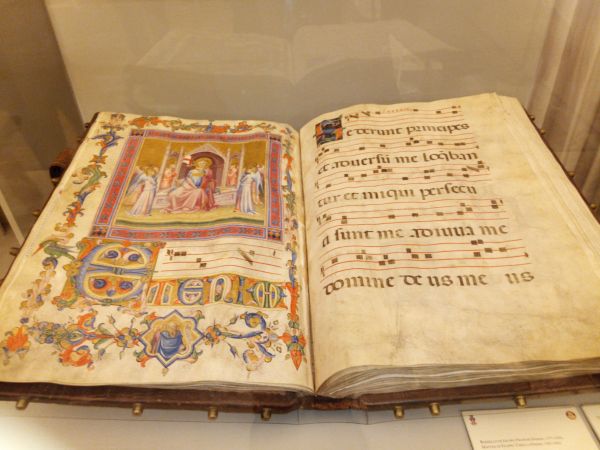 Etenim
Se derunt principes
et aduersū me loq̄ban
tur et iniqui persecu
ti sunt me adiuua me
domine de us me us